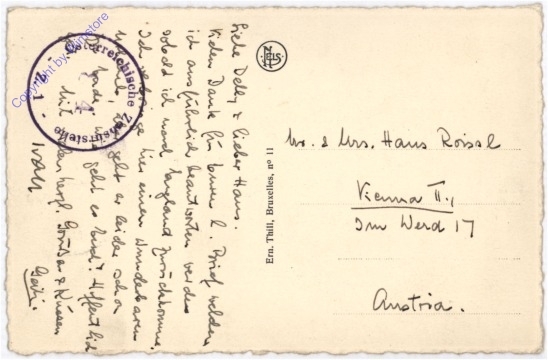 Liebe Delly & lieber Hans.
Vielen Dank für Euren l. Brief welchen
ich ausführlich beantworten werde
sobald ich nach England zurückkomme.
Ich verbringe hier einen wunderbaren
geht er leider schon
geht es Euch? Hoffentlich
Mit herzl. Grüßen & Küssen
Österreichische Zensurstelle
Copyright by Jimstore
NELS
Ern. Thill, Bruxelles, nº 11
Mr. & Mrs. Hans Roissl
Vienna II.,
Im Werd 17
Austria.